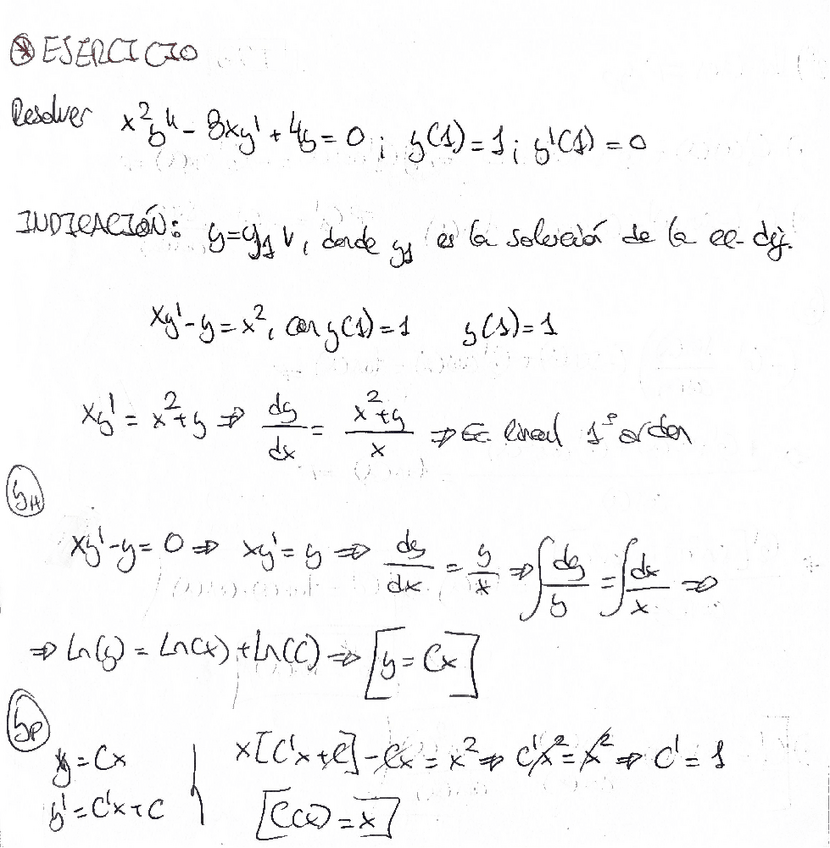 ⊛ EJERCICIO
Resolver x²y'' - 3xy' + 4y = 0; y(1) = 1; y'(1) = 0
INDICACIÓN: y = y₁v, donde y₁ es la solución de la ec. dif.
xy' - y = x², con y(1) = 1 y(1) = 1
xy' = x² + y ⇒ dy/dx = (x² + y)/x ⇒ Ec. lineal 1º orden
y_H
xy' - y = 0 ⇒ xy' = y ⇒ dy/dx = y/x ⇒ ∫dy/y = ∫dx/x ⇒
⇒ Ln(y) = Ln(x) + Ln(C) ⇒ [y = Cx]
y_P
y = Cx | x[C'x + C] - Cx = x² ⇒ C'x² = x² ⇒ C' = 1
y' = C'x + C | [C(x) = x]